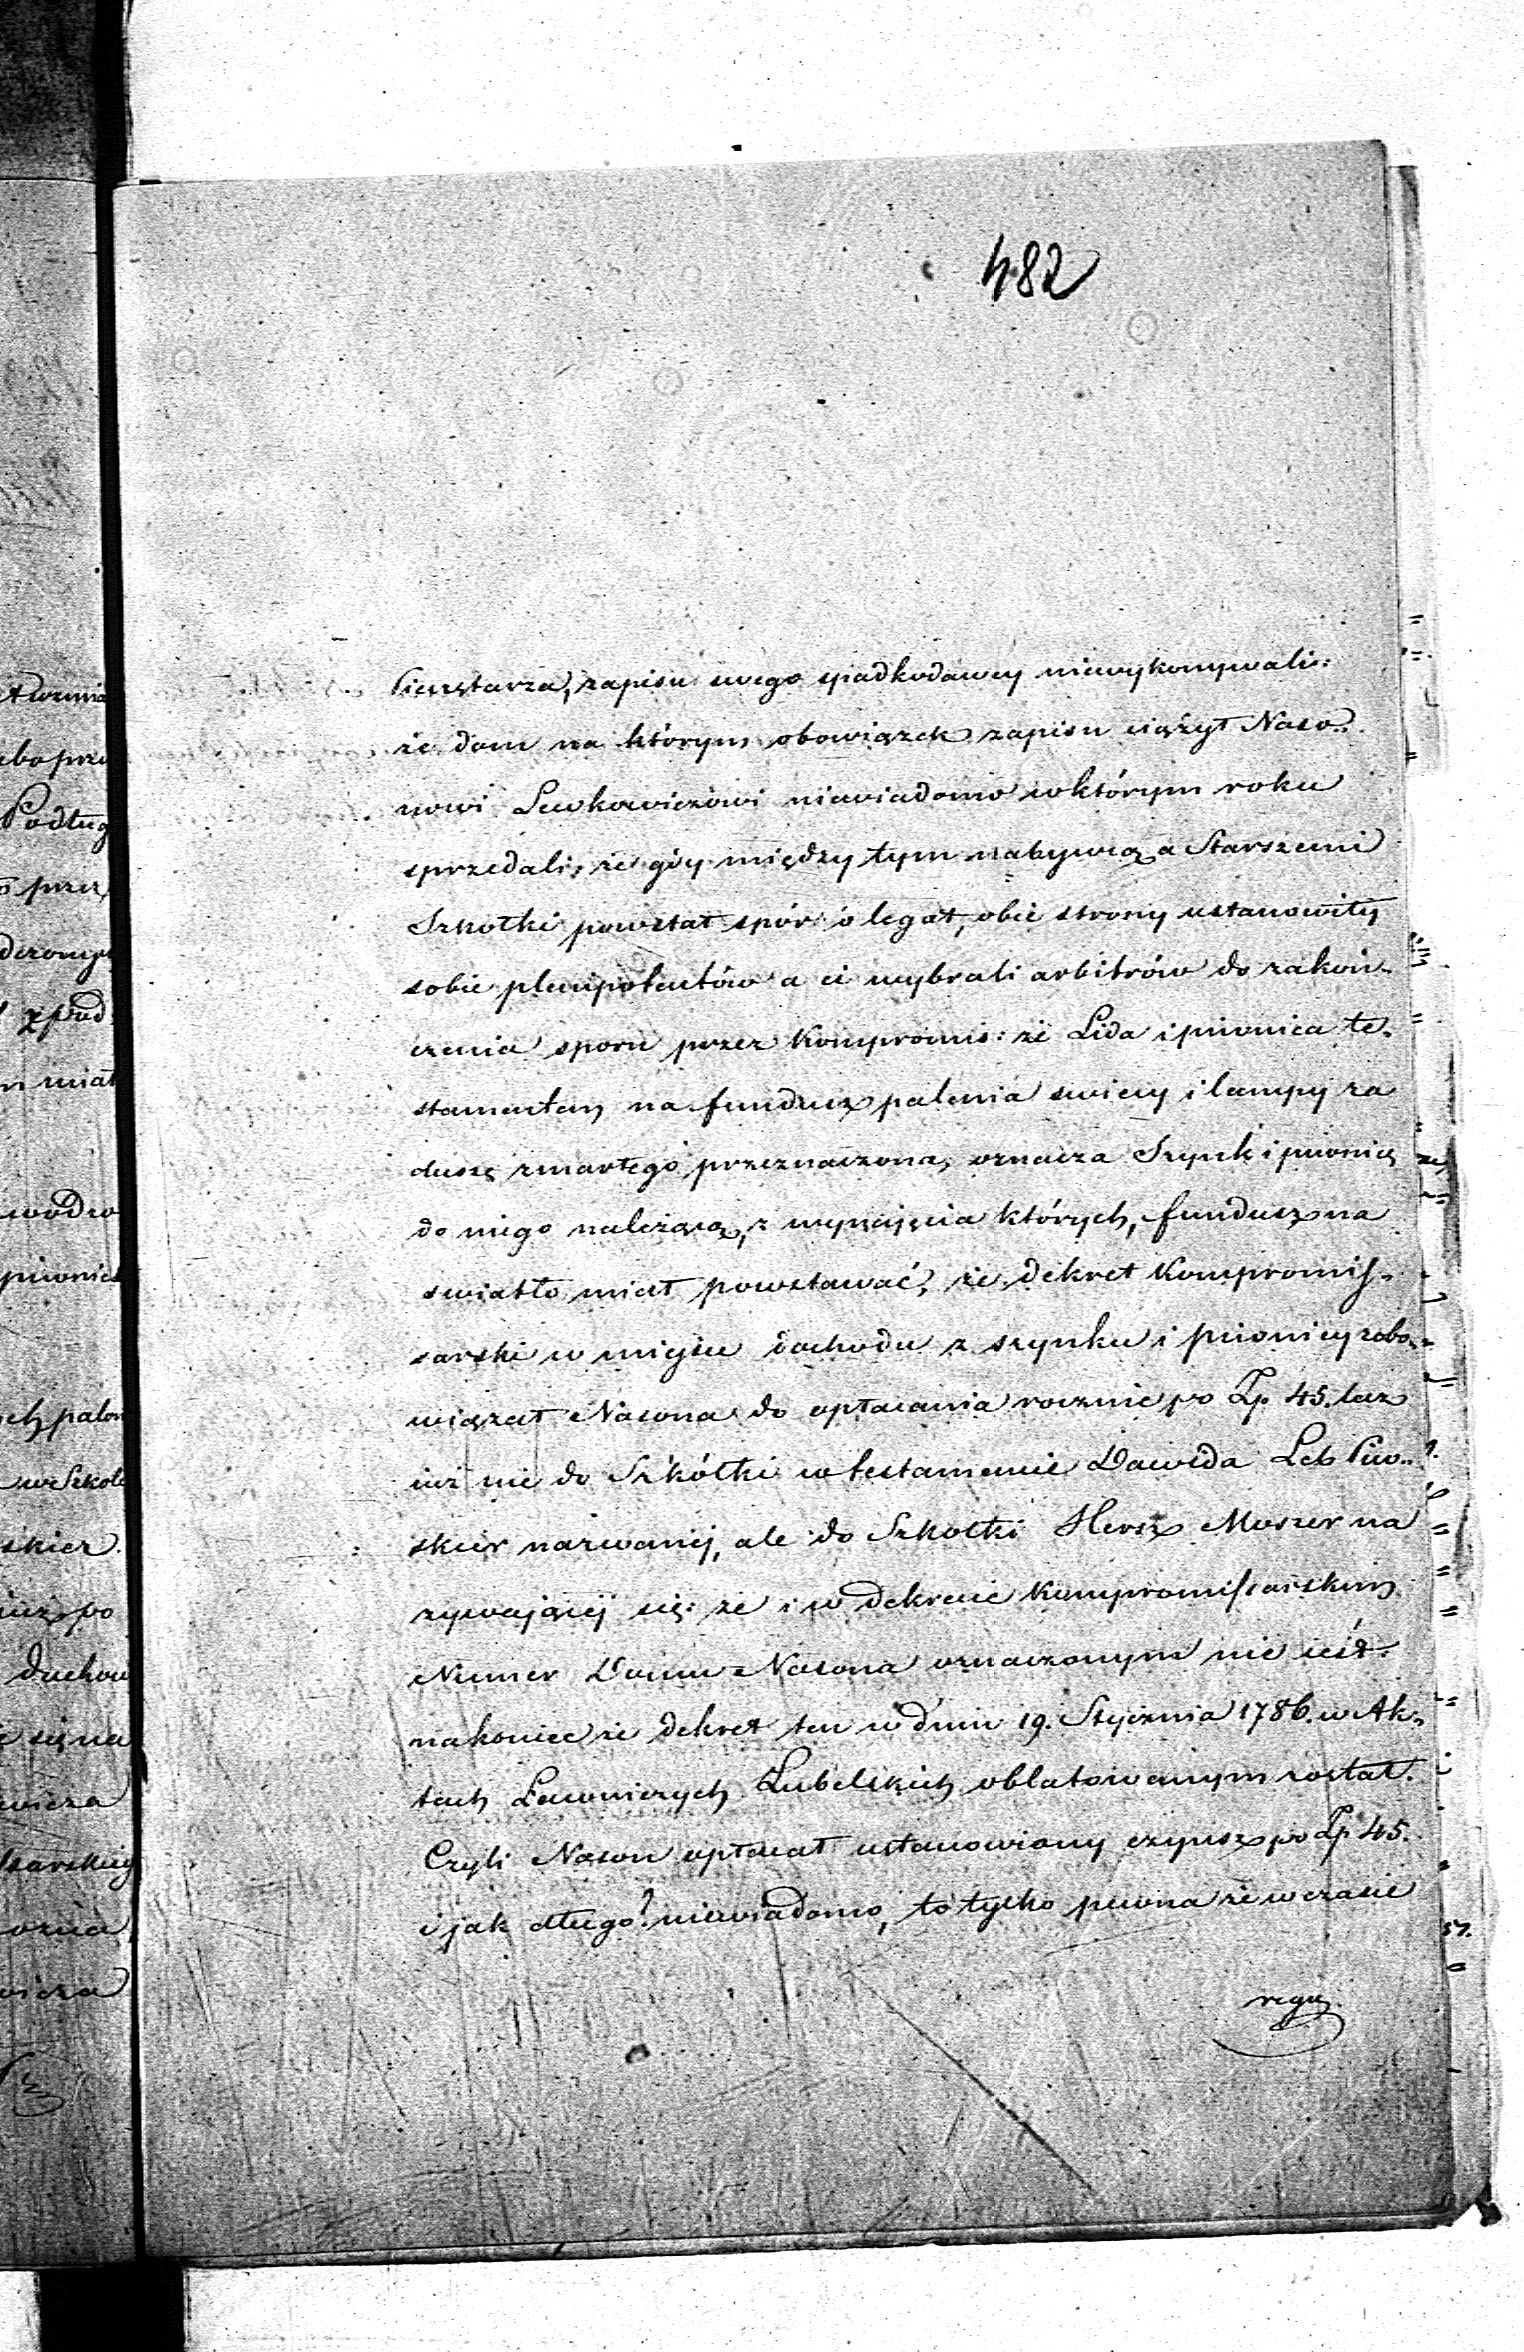 482
Pieczętarza, zapisu swego spadkodawcy niewykonywali:
że dom na którym obowiązek zapisu ciążył Naso-
nowi Lewkowiczowi niewiadomo w którym roku
sprzedali, że gdy między tym nabywcą a Starszemi
Szkołki powstał spór o legat, obie strony ustanowiły
sobie plenipotentów a ci wybrali arbitrów do zakoń-
czenia sporu przez Kompromis: że Lida i piwnica te-
stamentem na fundusz palenia swiecy i lampy za
duszę zmarłego przeznaczona, oznacza Szynk i piwnicę
do niego należącą, z wynajęcia których, fundusz na
swiatło miał powstawać, że dekret Kompromis-
sarski w miejscu dochodu z szynku i piwnicy zobo-
wiązał Nasona do opłacania rocznie po Zp. 45. lecz
iuż nie do Szkółki w testamencie Dawida Leb Piw-
skier nazwanéj, ale do Szkołki Hersz Moszer na
zywającéj się: że i w dekrecie Kompromissarskim
Numer Domu Nasona oznaczonym nie iest.
nakoniec że dekret ten w dniu 19. Stycznia 1786. w Ak-
tach Ławniczych Lubelskich oblatowanym został.
Czyli Nason opłacał ustanowiony czynsz po Zp 45.
i jak długo? niewiadomo, to tylko pewna że w czasie
regu
Podług
przez
miał
piwnic
palen
w Szkole
skier.
iuż po
się na
wicza
wicza